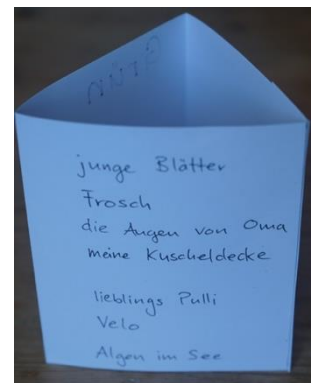 Grün
junge Blätter
Frosch
die Augen von Oma
meine Kuscheldecke
lieblings Pulli
Velo
Algen im See